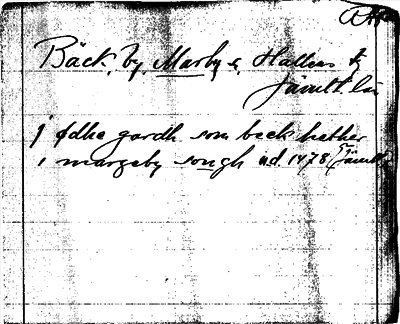 Bäck, by, Marby s, Hallens tg
Jämtl. län
j ødhe gardh som beck hether
i margaby songh ad 1478